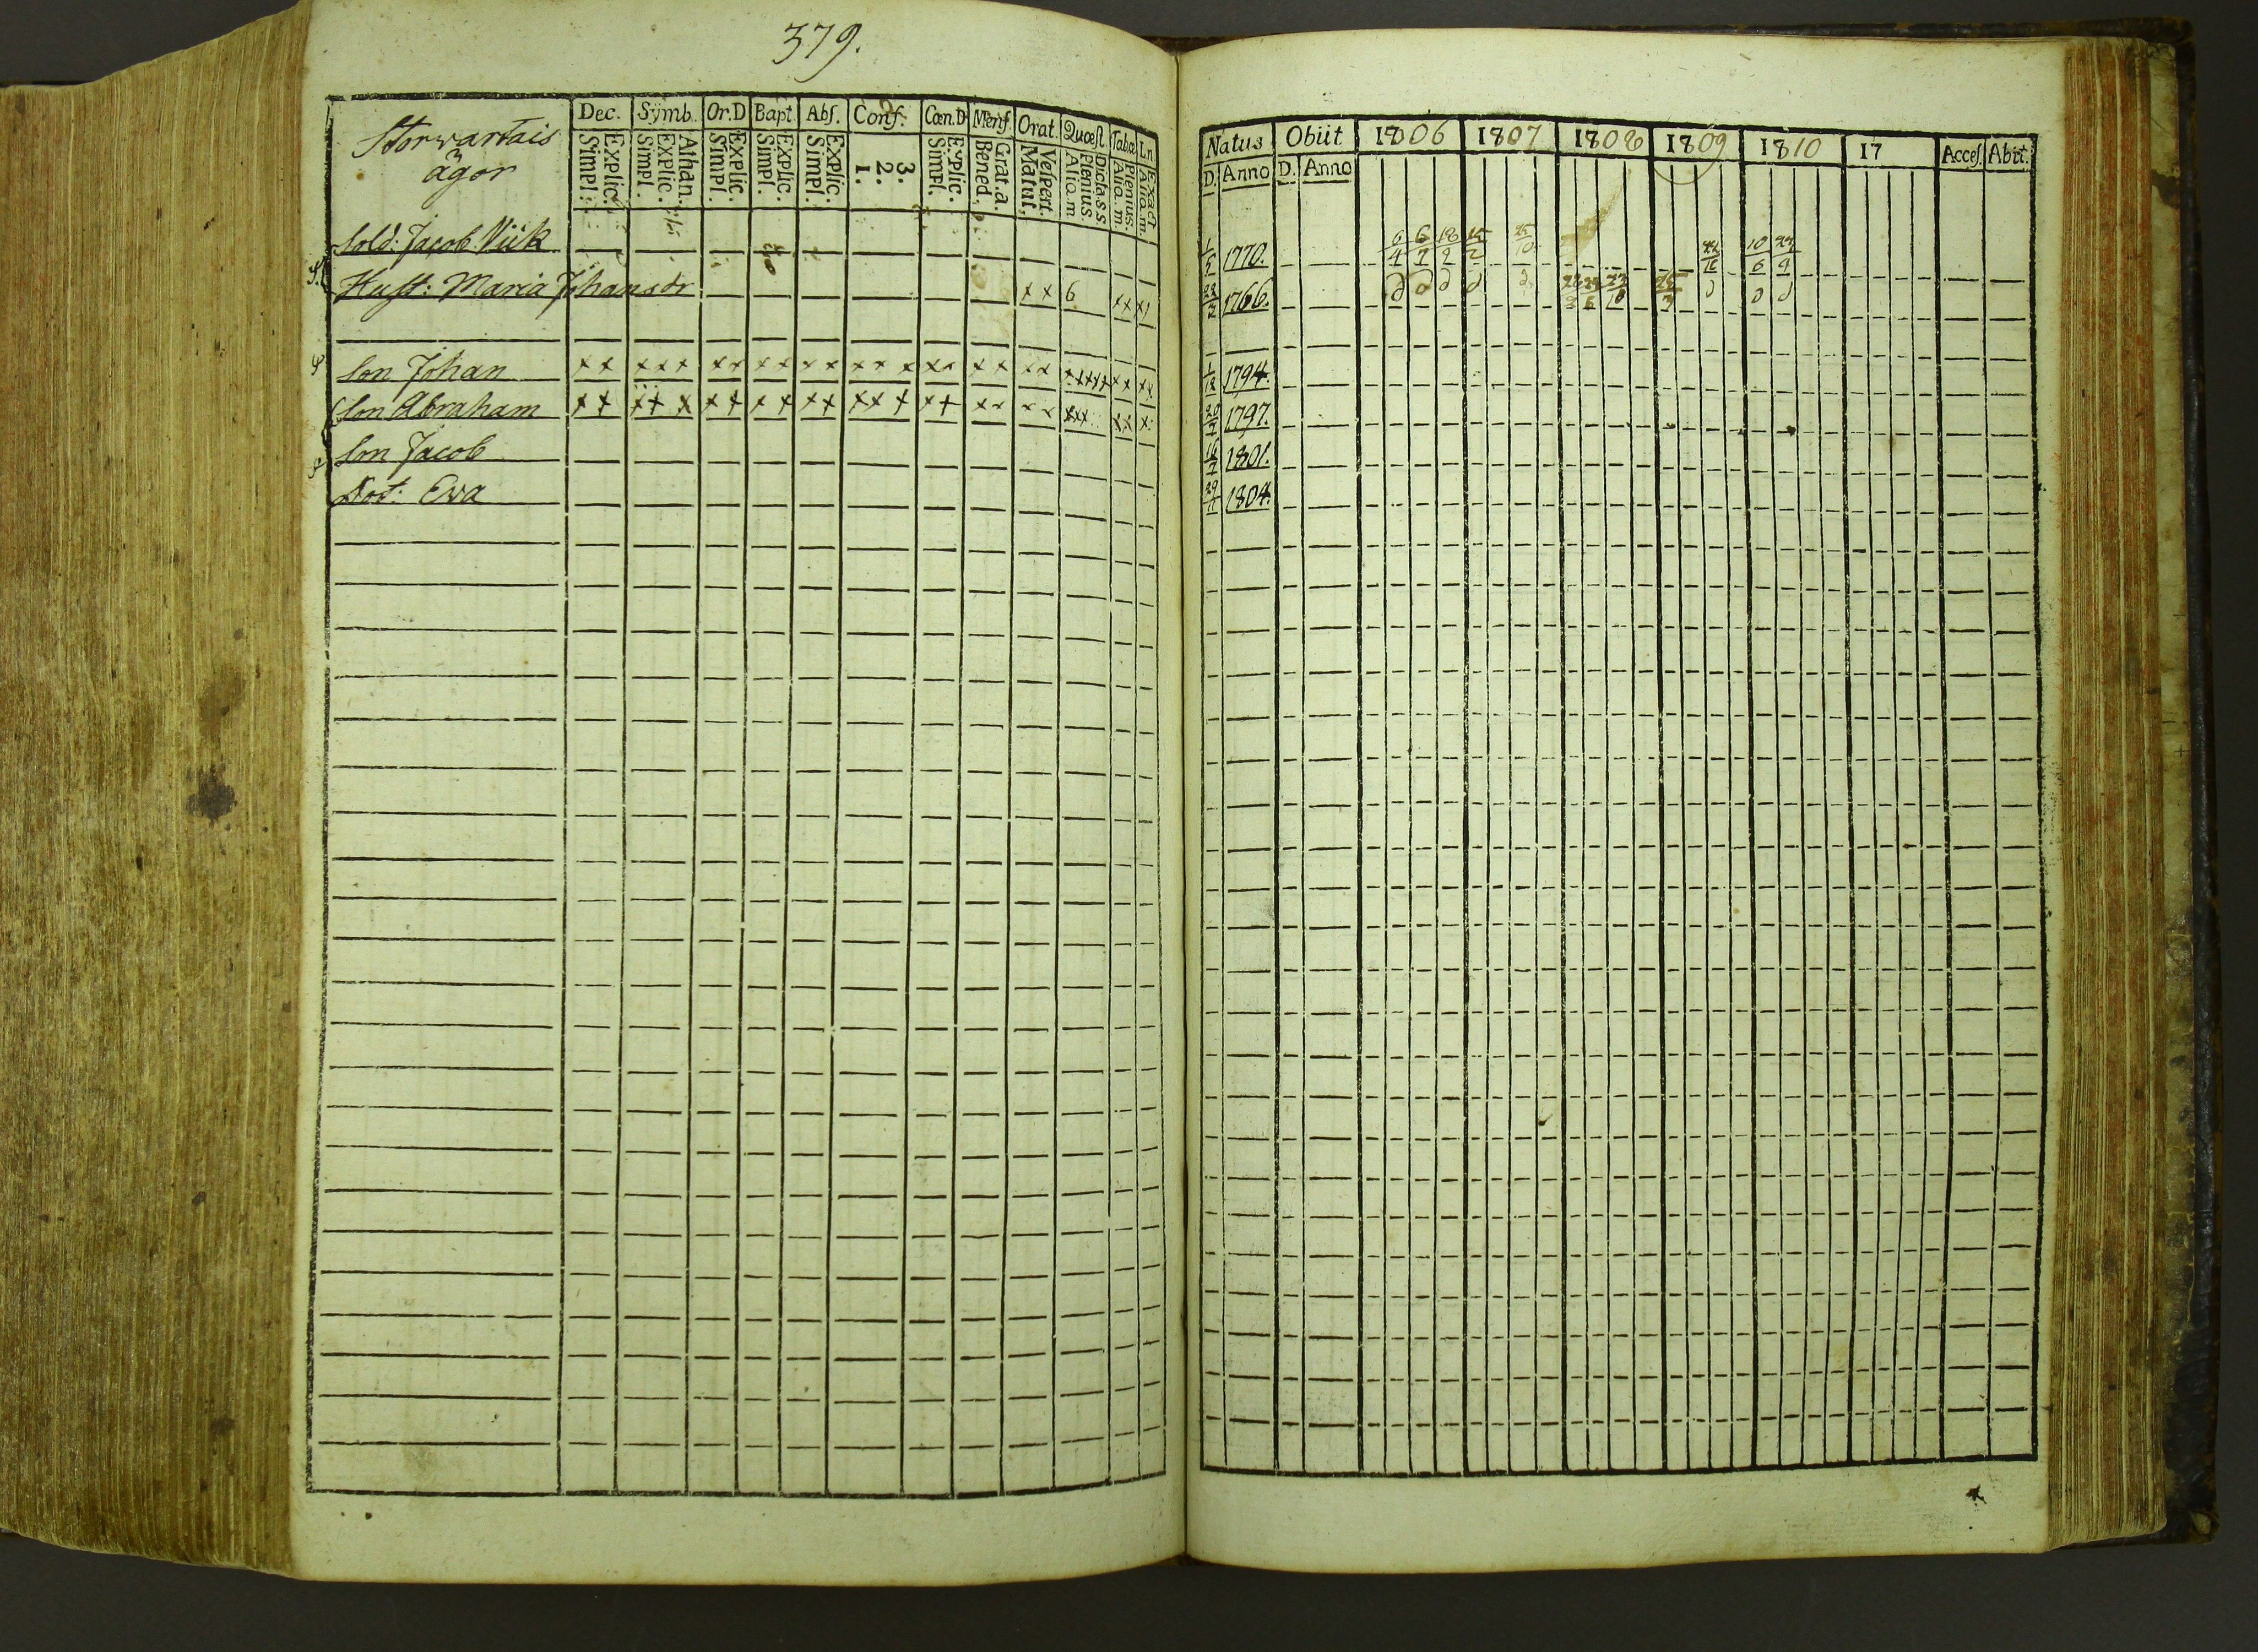 379.
Storwartais
ägor
Dec. Symb. Or.D Bapt. Abs. Conf. Cœn.D Mens. Orat. Quæst. Tabul. Ln.
Explic. Simpl. Athan. Explic. Simpl. Explic. Simpl. Explic. Simpl. Explic. Simpl. 3. 2. 1. Explic. Simpl. Grat.a. Bened. Vesperi. Matut. Dicta.s.s Plenius Alio.m. Plenius. Alio.m. Exact Alio.m.
Sold: Jacob Wiik
Hust: Maria Johansdr x x 6 x x x
Son Johan x x x x x x x x x x x x x x x x x x x x x x x x x x x x
Son Abraham x x x x x x x x x x x x x x x x x x x x x x x x x x x
Son Jacob
Dot: Eva
Natus Obiit 1806 1807 1808 1809 1810 17 Acces. Abit.
D. Anno D. Anno
1/5 1770. 6/4 6/7 18/9 15/2 25/10 10/6 23/9
22/2 1766. d d d d d d d d
1/12 1794.
20/7 1797.
16/7 1801.
29/11 1804.